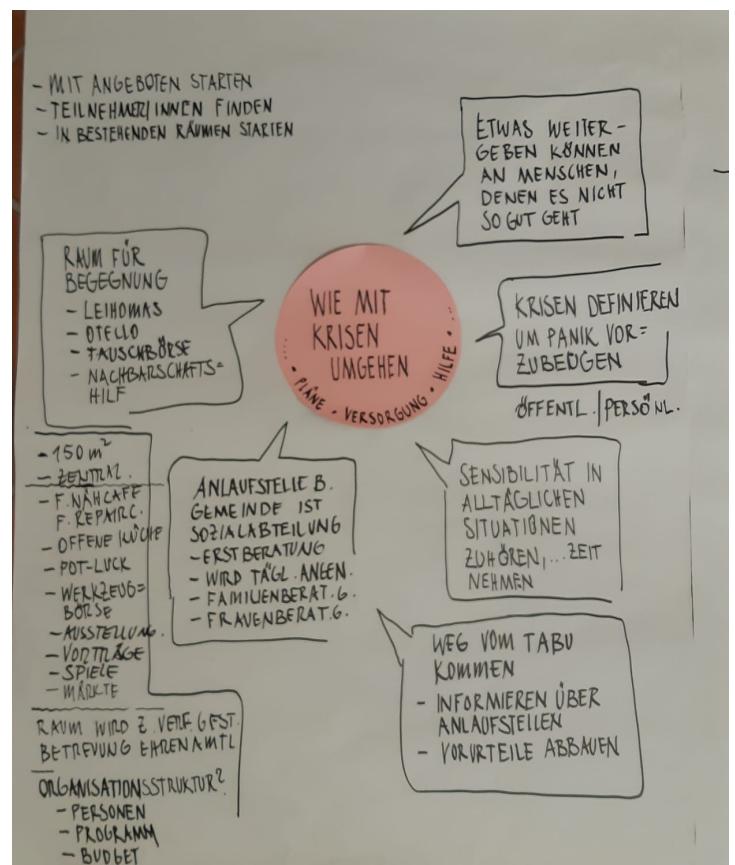 - MIT ANGEBOTEN STARTEN
- TEILNEHMER/INNEN FINDEN
- IN BESTEHENDEN RÄUMEN STARTEN
ETWAS WEITER-
GEBEN KÖNNEN
AN MENSCHEN,
DENEN ES NICHT
SO GUT GEHT
RAUM FÜR
BEGEGNUNG
- LEIHOMAS
- OTELLO
- TAUSCHBÖRSE
- NACHBARSCHAFTS=
HILF
WIE MIT
KRISEN
UMGEHEN
... • PLÄNE • VERSORGUNG • HILFE • ...
KRISEN DEFINIEREN
UM PANIK VOR=
ZUBEUGEN
ÖFFENTL./PERSÖNL.
- 150 m²
- ZENTRAL.
- F. NÄHCAFE
F. REPAIRC.
- OFFENE KÜCHE
- POT-LUCK
- WERKZEUG=
BÖRSE
- AUSSTELLUNG.
- VORTRÄGE
- SPIELE
- MÄRKTE
ANLAUFSTELLE B.
GEMEINDE IST
SOZIALABTEILUNG
- ERSTBERATUNG
- WIRD TÄGL. ANGEN.
- FAMILIENBERAT.G.
- FRAUENBERAT.G.
SENSIBILITÄT IN
ALLTÄGLICHEN
SITUATIONEN
ZUHÖREN, ... ZEIT
NEHMEN
WEG VOM TABU
KOMMEN
- INFORMIEREN ÜBER
ANLAUFSTELLEN
- VORURTEILE ABBAUEN
RAUM WIRD Z. VERF. GEST.
BETREUUNG EHRENAMTL
ORGANISATIONSSTRUKTUR?
- PERSONEN
- PROGRAMM
- BUDGET